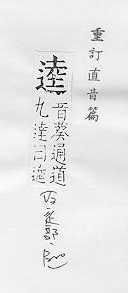 重訂直音篇
逵
音葵通道
九達逵
辵部